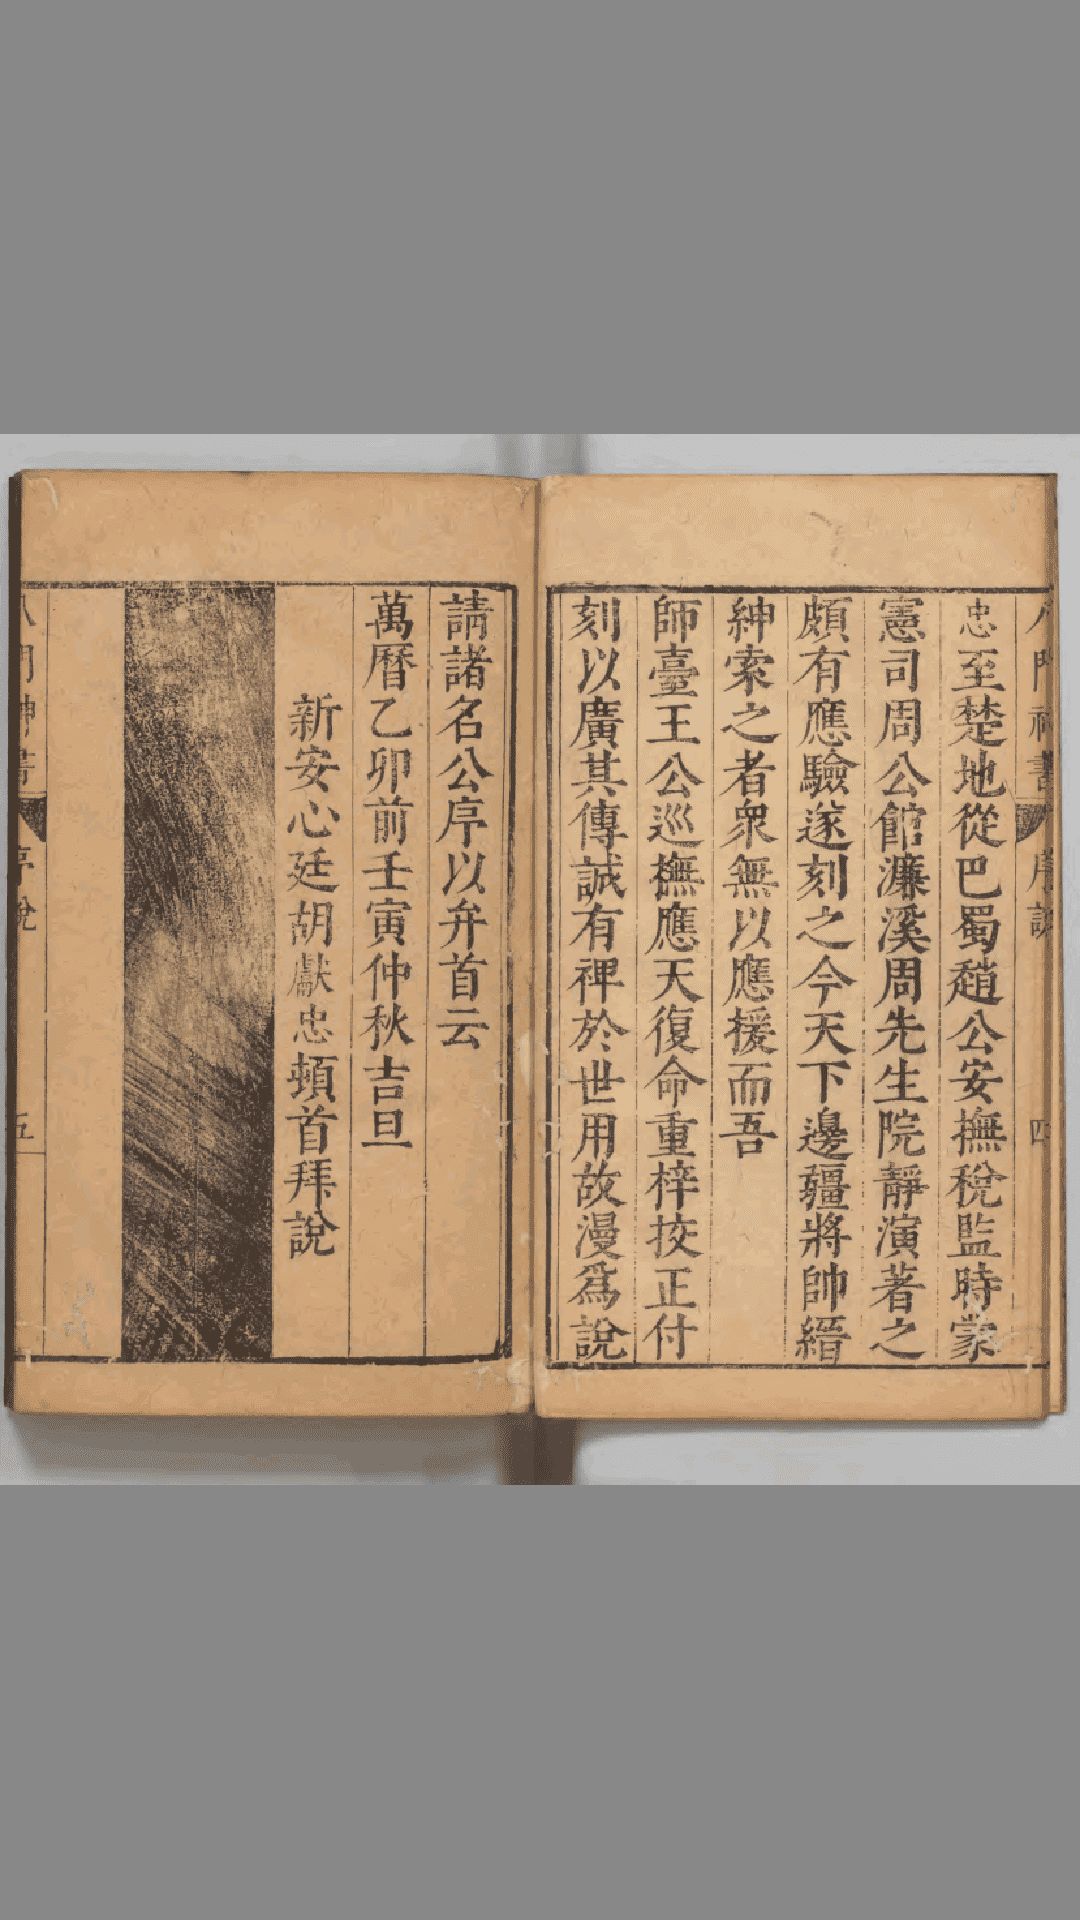 忠至楚地從巴蜀趙公安撫稅監時蒙
憲司周公館濂溪周先生院靜演著之
頗有應驗遂刻之今天下邊疆將帥縉
紳索之者衆無以應援而吾
師臺王公巡撫應天復命重梓挍正付
刻以廣其傳誠有裨於世用故漫爲說
請諸名公序以弁首云
萬曆乙卯前壬寅仲秋吉旦
新安心廷胡獻忠頓首拜說
序說
五